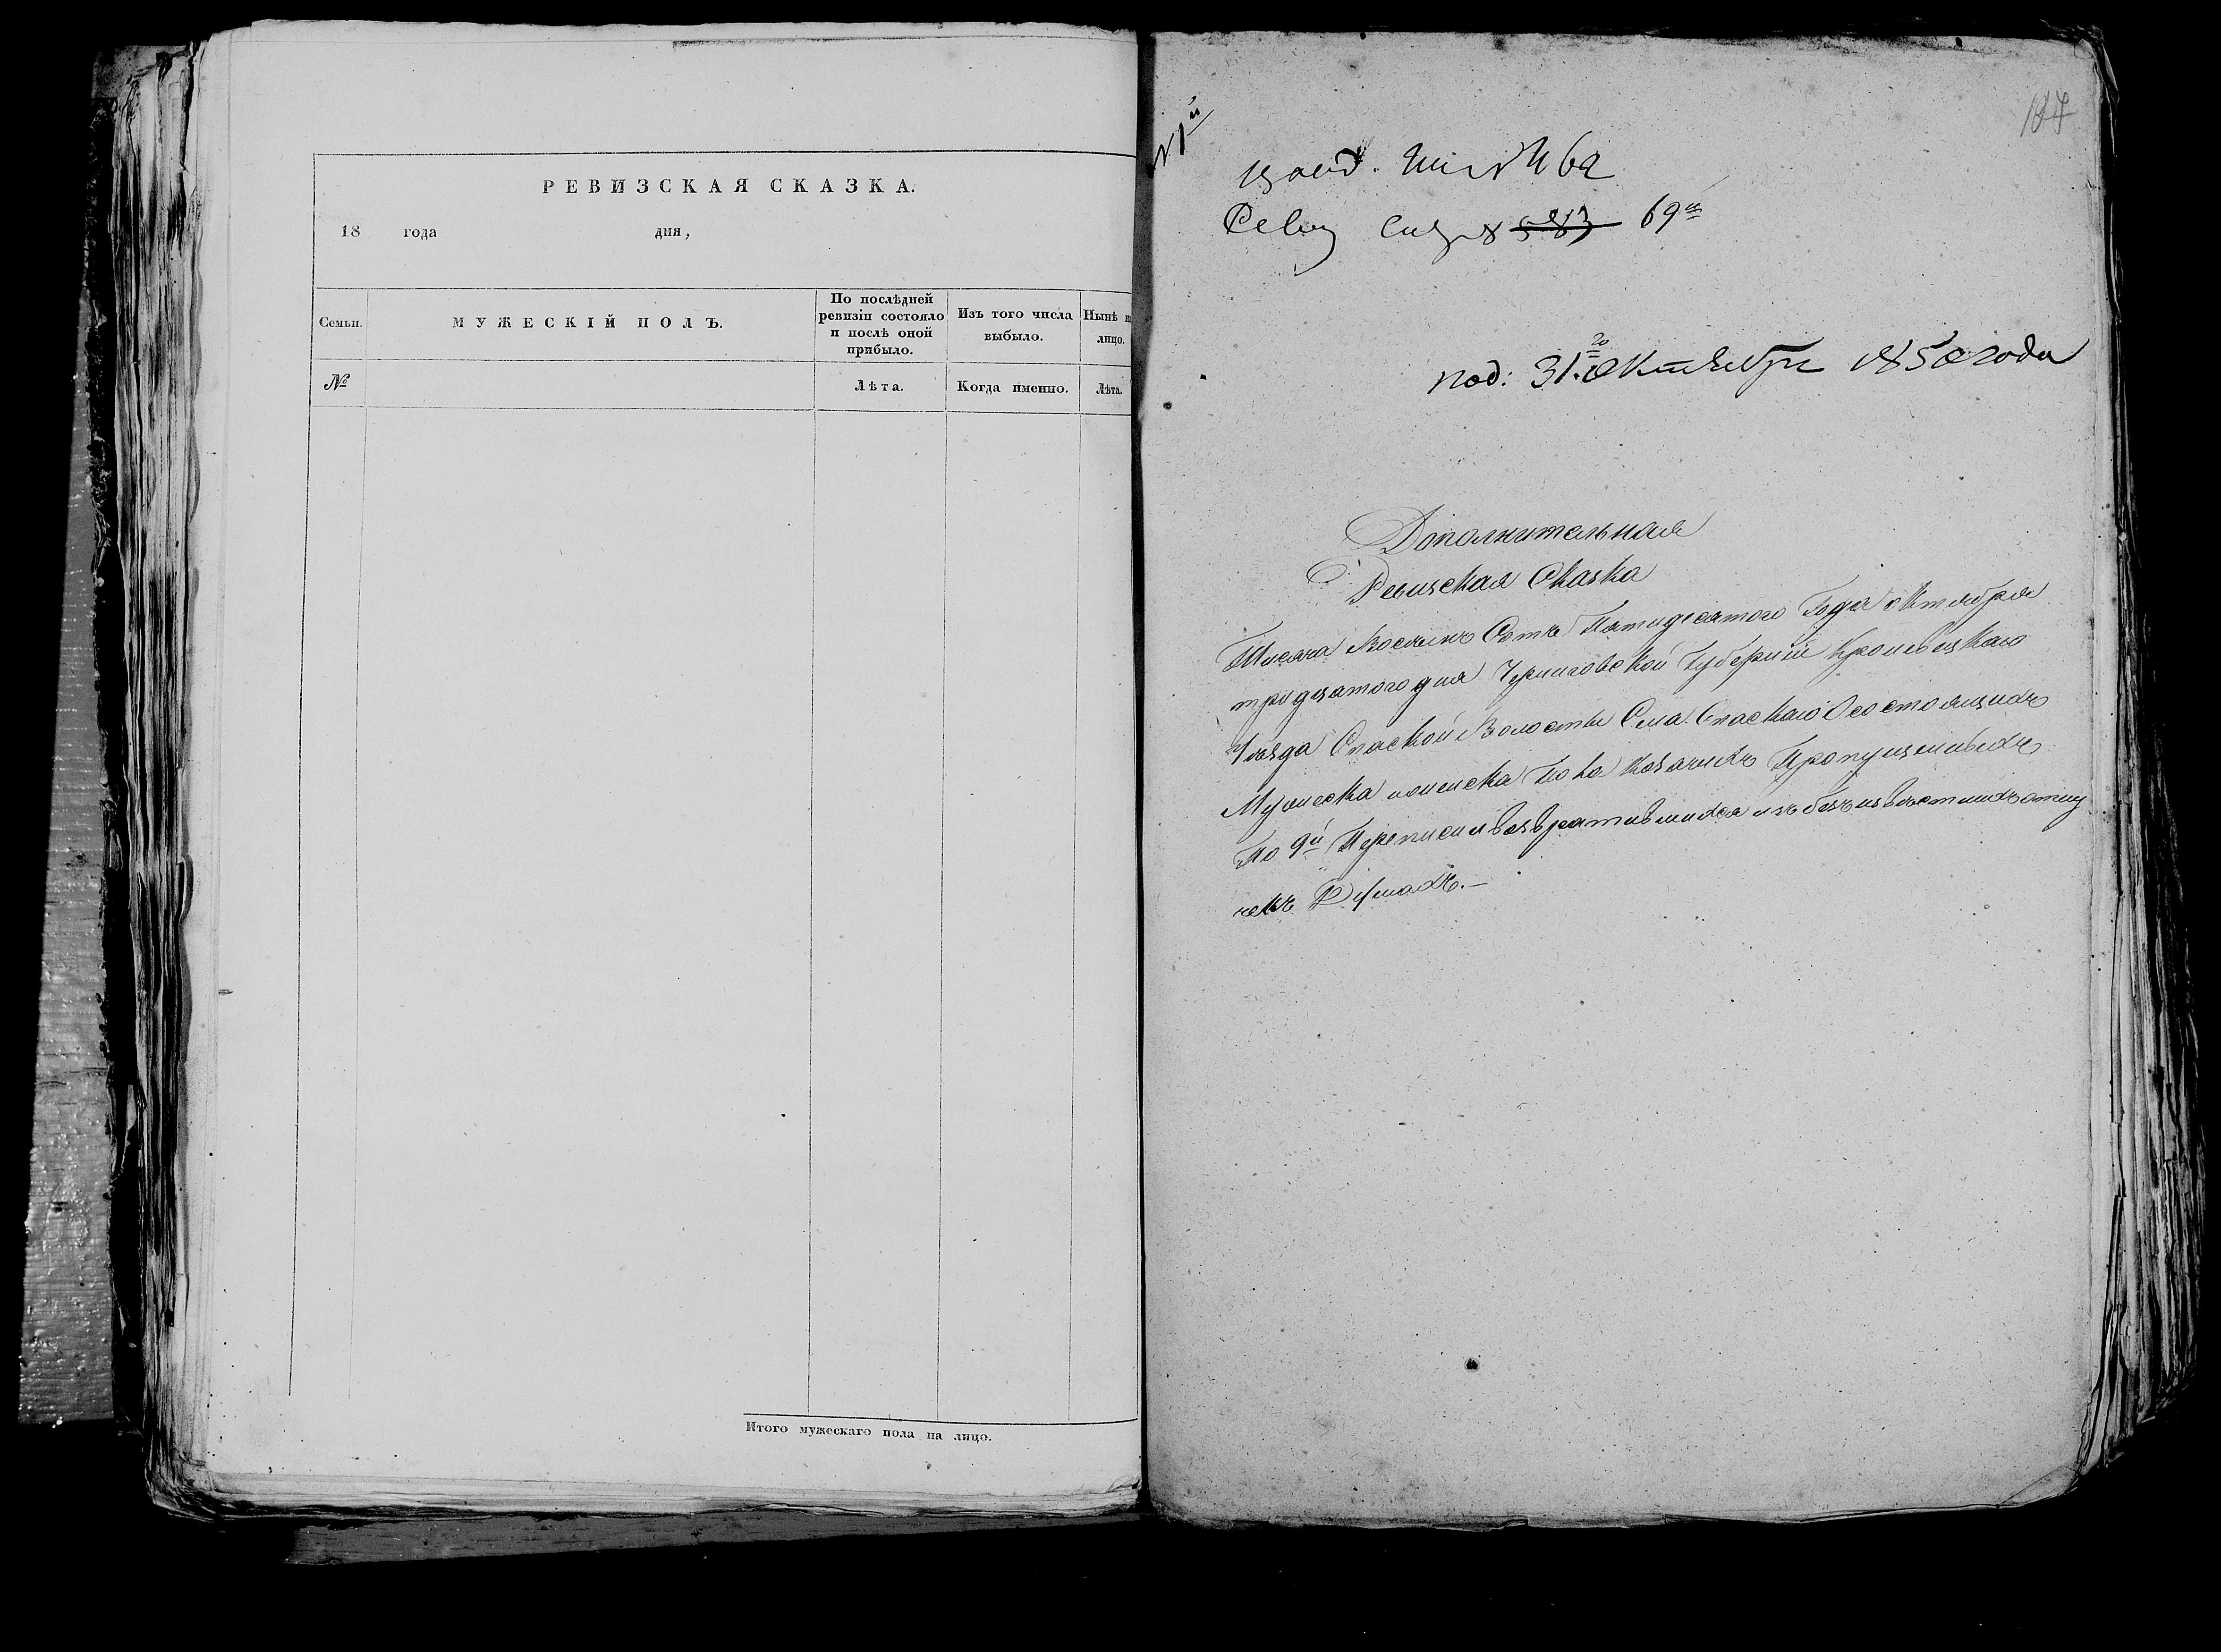 РЕВИЗСКАЯ СКАЗКА.
18 года дня,
Семьи.
МУЖЕСКІЙ ПОЛЪ.
По послѣдней
ревизіи состояло
и послѣ оной
прибыло.
Изъ того числа
выбыло.
Нынѣ н
лицо.
№
Лѣта.
Когда именно.
Лѣта.
Итого мужескаго пола на лицо.
№ 62
Ревиз Сказ 583 69й
под: 31.го Октября 1850 года
Дополнительная
Ревизская Сказка
Тысяча Восемъ Сотъ Пятидесятого Года октября
тридцатого дня Черниговской Губерніи Кролевецкаго
Уѣзда Спаской Волости Села Спаскаго о состоящихъ
Мужеска и женска Пола козачихъ Пропущенныхъ
По 9й Переписи и возвратившихся изъ безъизвѣстныхъ отлу
чекъ Душахъ.—